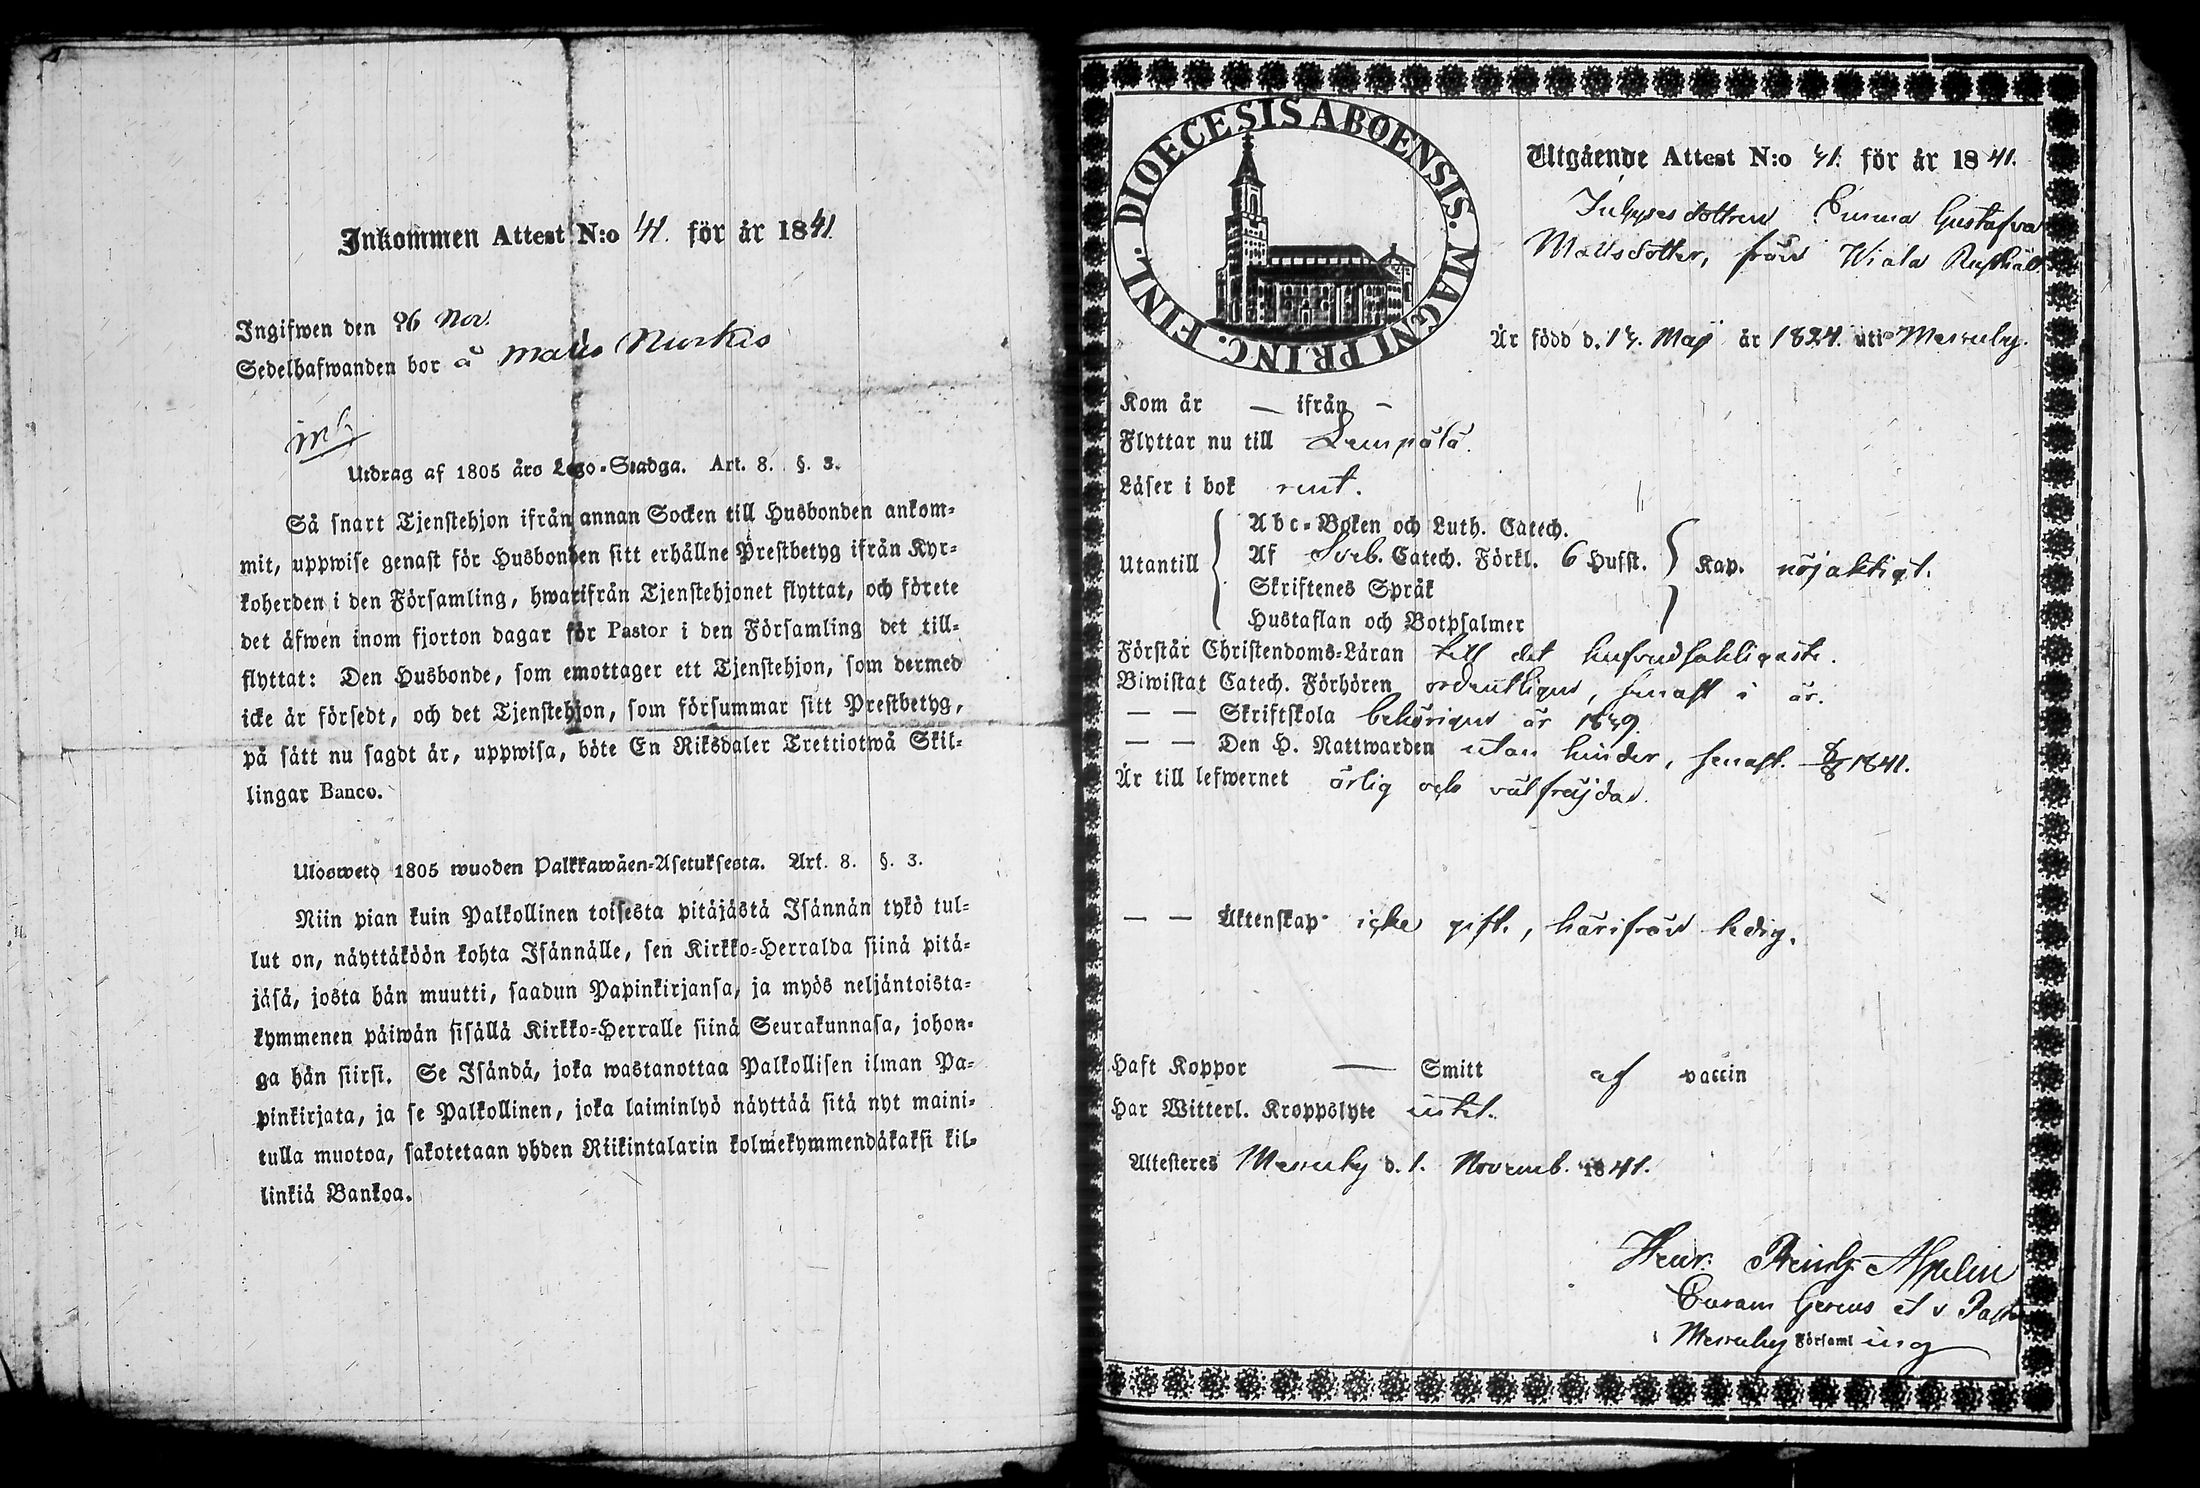 Inkommen Attest N:o 41. för år 1841.
Ingifwen den 26 Nov.
Sedelhafwanden bor å Matts Nurkis
Utdrag af 1805 års Lego-Stadga. Art. 8. §. 3.
Så snart Tjenstehjon ifrån annan Socken till Husbonden ankom-
mit, uppwise genast för Husbonden sitt erhållne Prestbetyg ifrån Kyr-
koherden i den Församling, hwarifrån Tjenstehjonet flyttat, och förete
det äfwen inom fjorton dagar för Pastor i den Församling det till-
flyttat: Den Husbonde, som emottager ett Tjenstehjon, som dermed
icke är försedt, och det Tjenstehjon, som försummar sitt Prestbetyg,
på sätt nu sagdt är, uppwisa, böte En Riksdaler Trettiotwå Skil-
lingar Banco.
Uloswetо 1805 wuoden Palkkawäen-Asetuksesta. Art. 8. §. 3.
Niin pian kuin Palkollinen toisesta pitäjästä Isännän tykö tul-
lut on, näyttäköön kohta Isännälle, sen Kirkko-Herralda siinä pitä-
jäsä, josta hän muutti, saadun Papinkirjansa, ja myös neljäntoista-
kymmenen päiwän sisällä Kirkko-Herralle siinä Seurakunnasa, johon-
ga hän siirsi. Se Isändä, joka wastanottaa Palkollisen ilman Pa-
pinkirjata, ja se Palkollinen, joka laiminlyö näyttää sitä nyt maini-
tulla muotoa, sakotetaan yhden Riikintalarin kolmekymmendäkaksi kil-
linkiä Bankoa.
DIOECESIS ABOENSIS. MAGNI PRINC. FINL.
Utgående Attest N:o 41. för år 1841.
Inhyses dottren Emma Gustafva
Mattsdotter, från Wiala
Är född d. 17. Maj år 1824. uti Messuby.
Kom år — ifrån —
Flyttar nu till Lempälä.
Läser i bok rent.
Utantill
Abc-Boken och Luth. Catech.
Af Sveb. Catech. Förkl. 6 Hufst.
Skriftenes Språk
Hustaflan och Botpsalmer
Kap. nöjaktigt.
Förstår Christendoms-Läran till det hufvudsakligaste.
Biwistat Catech. Förhören ordentligen, senast i år.
— — Skriftskola behörigen år 1839.
— — Den H. Nattwarden utan hinder, senast 1841.
Är till lefwernet ärlig och välfräjdad.
— — Äktenskap icke gift, härifrån ledig.
Haft Koppor — Smitt af vaccin
Har Witterl. Kroppslyte intet.
Attesteres Messuby d. 1. Novemb. 1841.
Henr. Reinh. Aspelin
Curam Gerens et v Past
i Messuby Församling